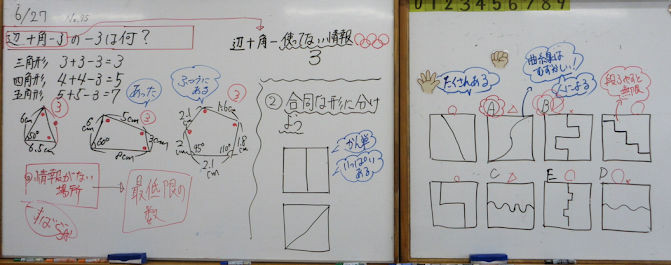 6/27 No.35
辺+角-3の-3は何?
三角形 3+3-3=3
四角形 4+4-3=5
五角形 5+5-3=7
あった
ふつうにある
③
③
③
6cm
50°
6.5cm
5cm
60°
3cm
8cm
2.1cm
1.6cm
1.8cm
110°
2.1cm
情報がない場所
最低限の数
辺+角-使ってない情報
3
② 合同な形に分けよう
かん単
いっぱいある
0 1 2 3 4 5 6 7 8 9
たくさんある
曲線は
むずかしい!
無限
A
B
C
E
D